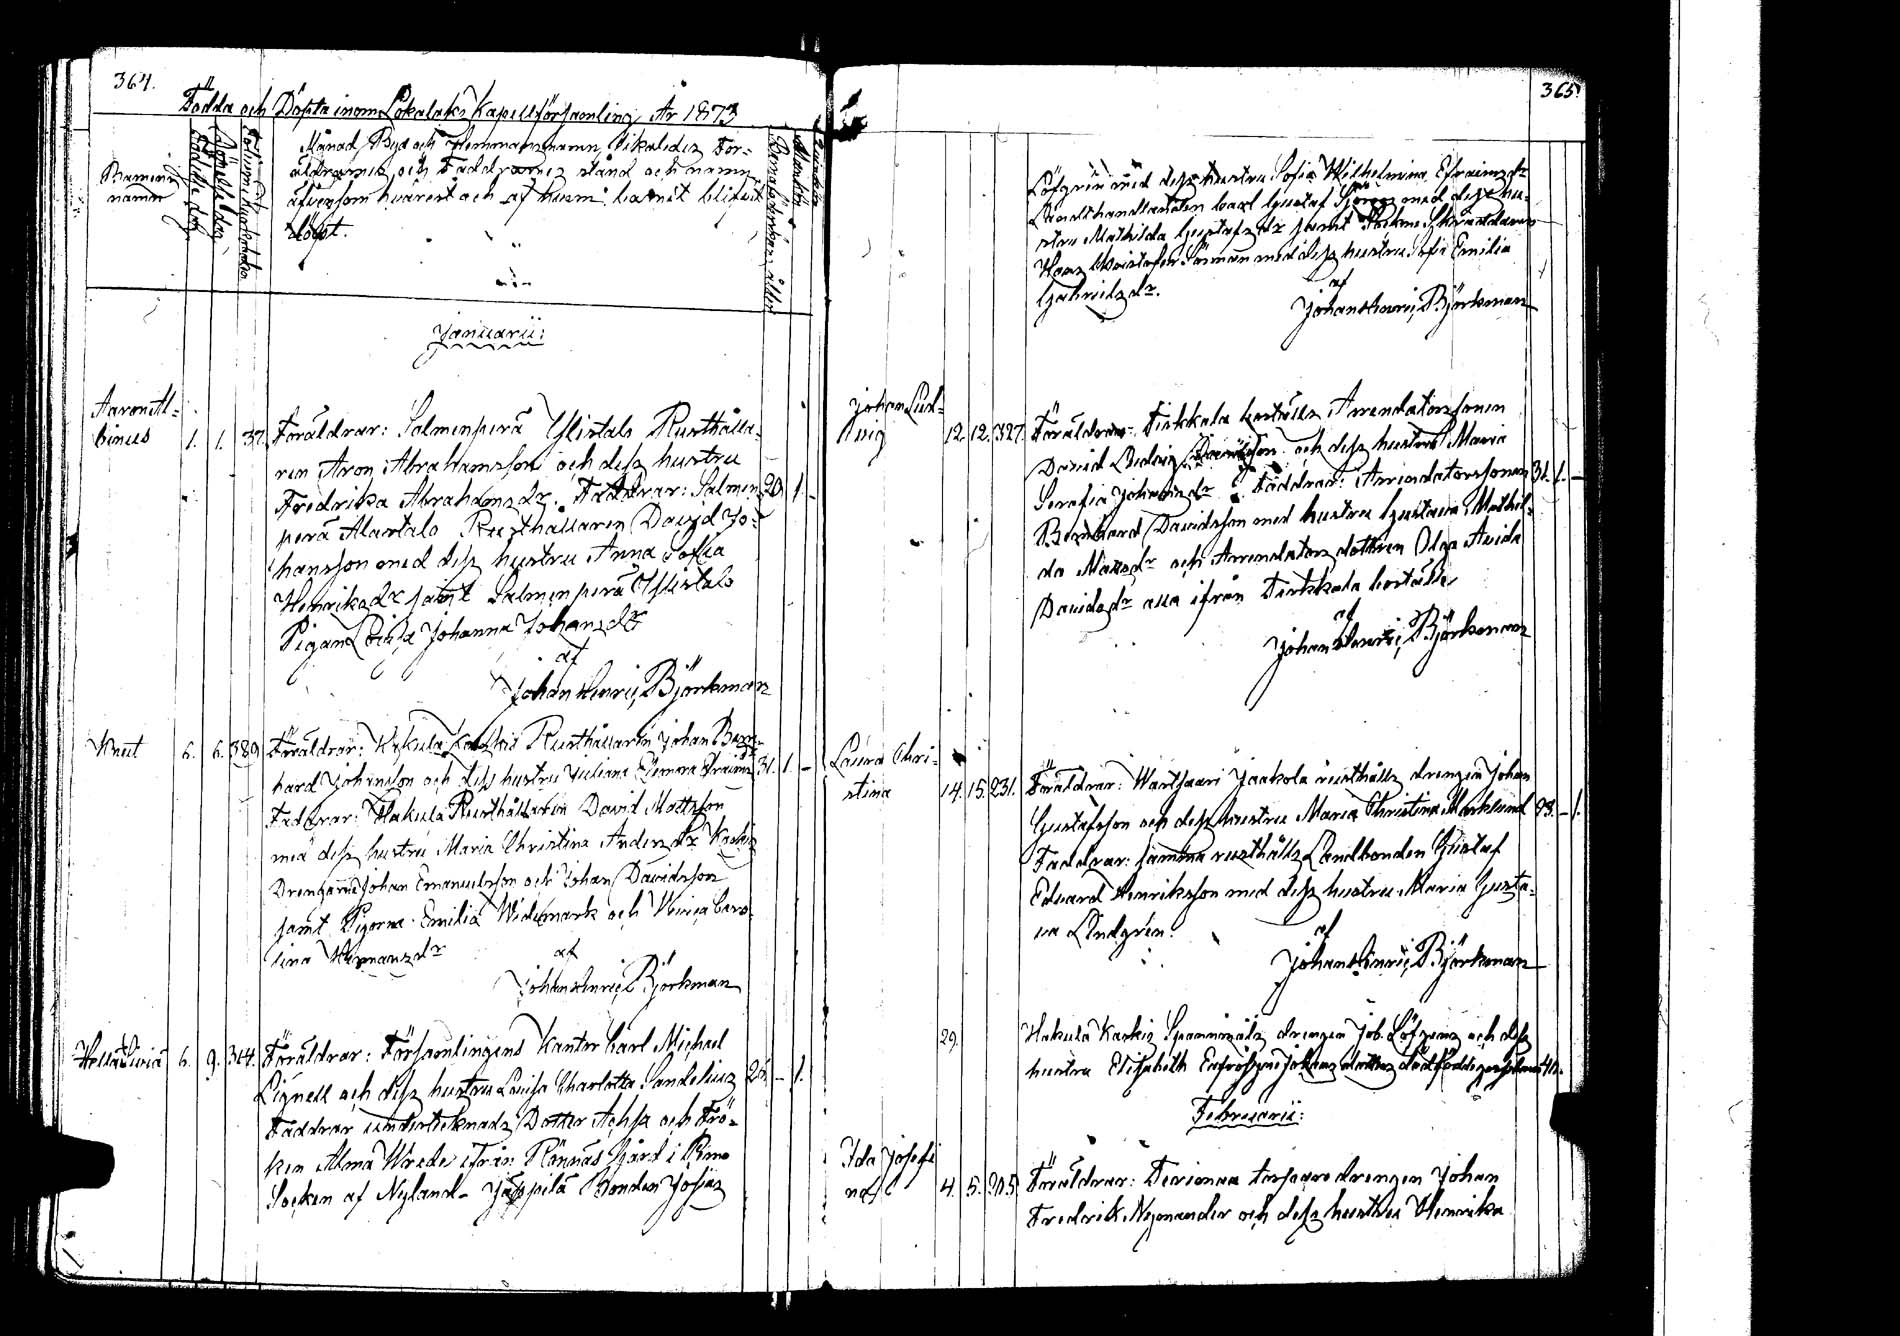 364.
Födda och Döpta inom Lokalaks Kapellförsamling År 1873
Barnens
namn
Födelsedag
Döpelsedag
Månad, Byä och Hemmansnamn, likaledes För-
äldrarnes och Faddrarnes stånd och namn
äfvensom hvarest och af hvem barnet blifvit
döpt.
Mankön
Qvinkön
Januarii:
Aaron Al-
binus 1. 1. 37. Föräldrar: Salmenperä Ylistalo Rusthålla-
ren Aron Abrahamsson och dess hustru
Fredrika Abrahamsdr. Faddrar: Salmen- 20. 1. -
perä Alastalo Rusthållaren David Jo-
hansson med dess hustru Anna Sofia
Henriksdr samt Salmenperä Ylistalo
Pigan Lovisa Johanna Johansdr
af
Johan Henric Björkman
Knut 6. 6. 389. Föräldrar: Kukula Rusthållaren Johan Bern-
hard Johansson och dess hustru Juliana 31. 1. -
Faddrar: Hakula Rusthållaren David Mattsson
med dess hustru Maria Christina Andersdr
Drengarne Johan Emanuelsson och Johan Davidsson
samt Pigorna Emilia Widemark och Caro-
lina Hermansdr
af
Johan Henric Björkman
6. 9. 344. Föräldrar: Församlingens Kantor Carl Michael
Lignell och dess hustru Lovisa Charlotta Sandelius 26. - 1.
Faddrar undertecknads Dotter och Frö-
ken Alma Wrede ifrån Rönnäs Gård i
Socken af Nyland - Jäppilä Bonden Josias
365.
Löfgren med dess hustru Sofia Wilhelmina Efraimsdr
Landthandlanden Carl Gustaf med dess hu-
stru Mathilda Gustafsdr samt Skräddaren
med dess hustru Sofia Emilia
Gabrielsdr.
af
Johan Henric Björkman
Johan Lud-
vig 12. 12. 327. Föräldrar: Tirkkala boställs Arrendatorssonen
David Ludvig Davidsson och dess hustru Maria
Serafia Johansdr Faddrar: Arrendatorssonen 31. 1. -
Bernhard Davidsson med hustru Gustava Mathil-
da och Arrendatorsdottren Olga Avida
Davidsdr alla ifrån Tirkkala boställe
af
Johan Henric Björkman
Laura Chri-
stina 14. 15. 231. Föräldrar: Wartsaari Jaakola rusthålls drengen Johan
Gustafsson och dess hustru Maria Christina Marklund 23. - 1.
Faddrar: samma rusthålls Landbonden Gustaf
Edvard Henriksson med dess hustru Maria Gusta-
va Lindgrén.
af
Johan Henric Björkman
29. Hakula drengen Job. Löfgrens och dess
hustru Elisabeth Eufrosyne 40.
Februarii:
Ida Josefi
na 4. 5. 205. Föräldrar: torpare drengen Johan
Fredrik Nymander och dess hustru Henrika